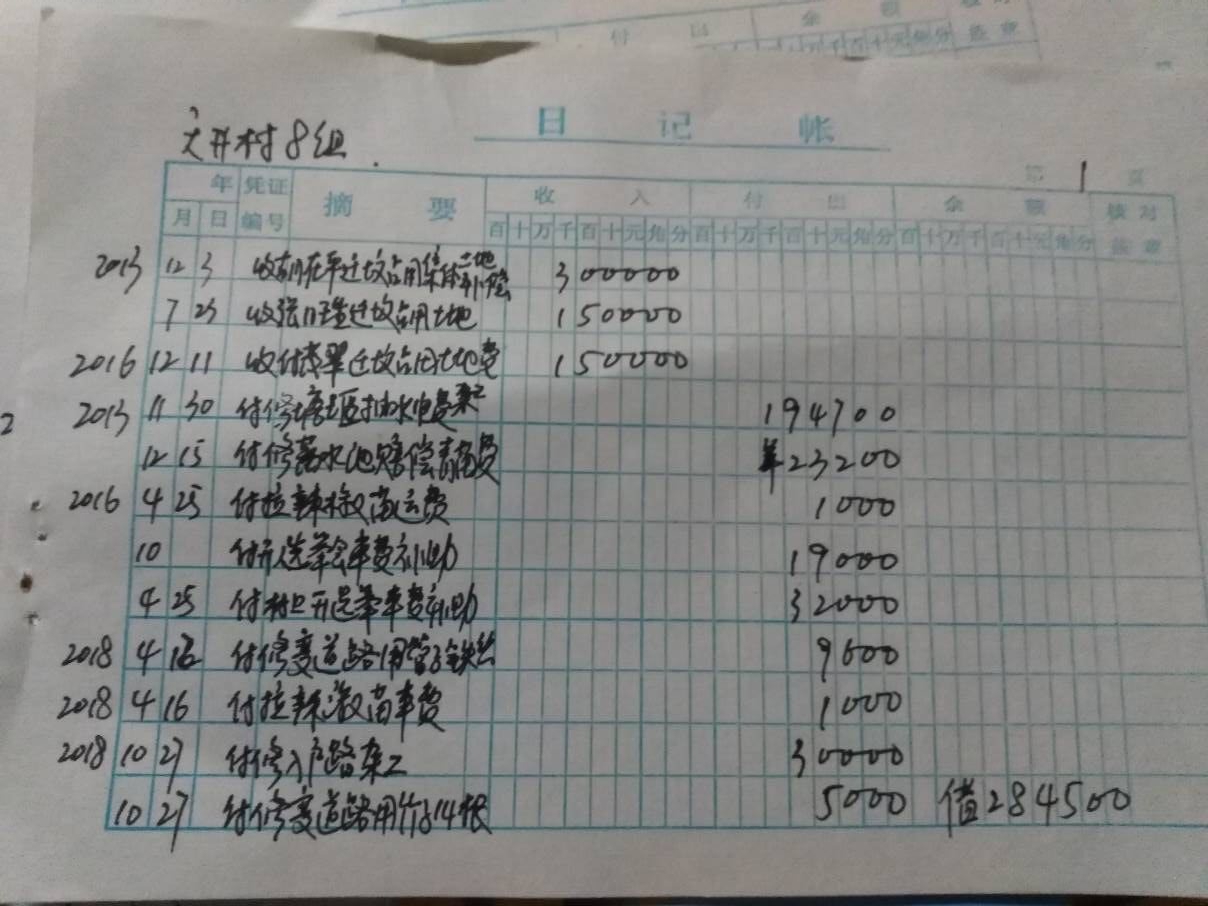 付 出 余 额
百 十 元 角 分 盖 章
大井村8组
日 记 帐
第 1 页
年 凭证 摘 要 收 入 付 出 余 额 核 对
月 日 编号 百 十 万 千 百 十 元 角 分 百 十 万 千 百 十 元 角 分 百 十 万 千 百 十 元 角 分 盖 章
2013 12 3 收 迁坟占用集体土地补偿 300000
7 23 收张 迁坟占用土地 150000
2016 12 11 收付 翠迁坟占用土地费 150000
2
2013 11 30 付修 抽水电费杂工 194700
12 15 付修蓄水池赔偿青苗费 ¥23200
2016 4 25 付拉辣椒苗运费 1000
10 付开选举会车费补助 19000
4 25 付村上开选举车费补助 32000
2018 4 16 付修赛道路用管子铁丝 9600
2018 4 16 付拉辣椒苗车费 1000
2018 10 27 付修入户路杂工 30000
10 27 付修赛道路用竹子14根 5000 借284500